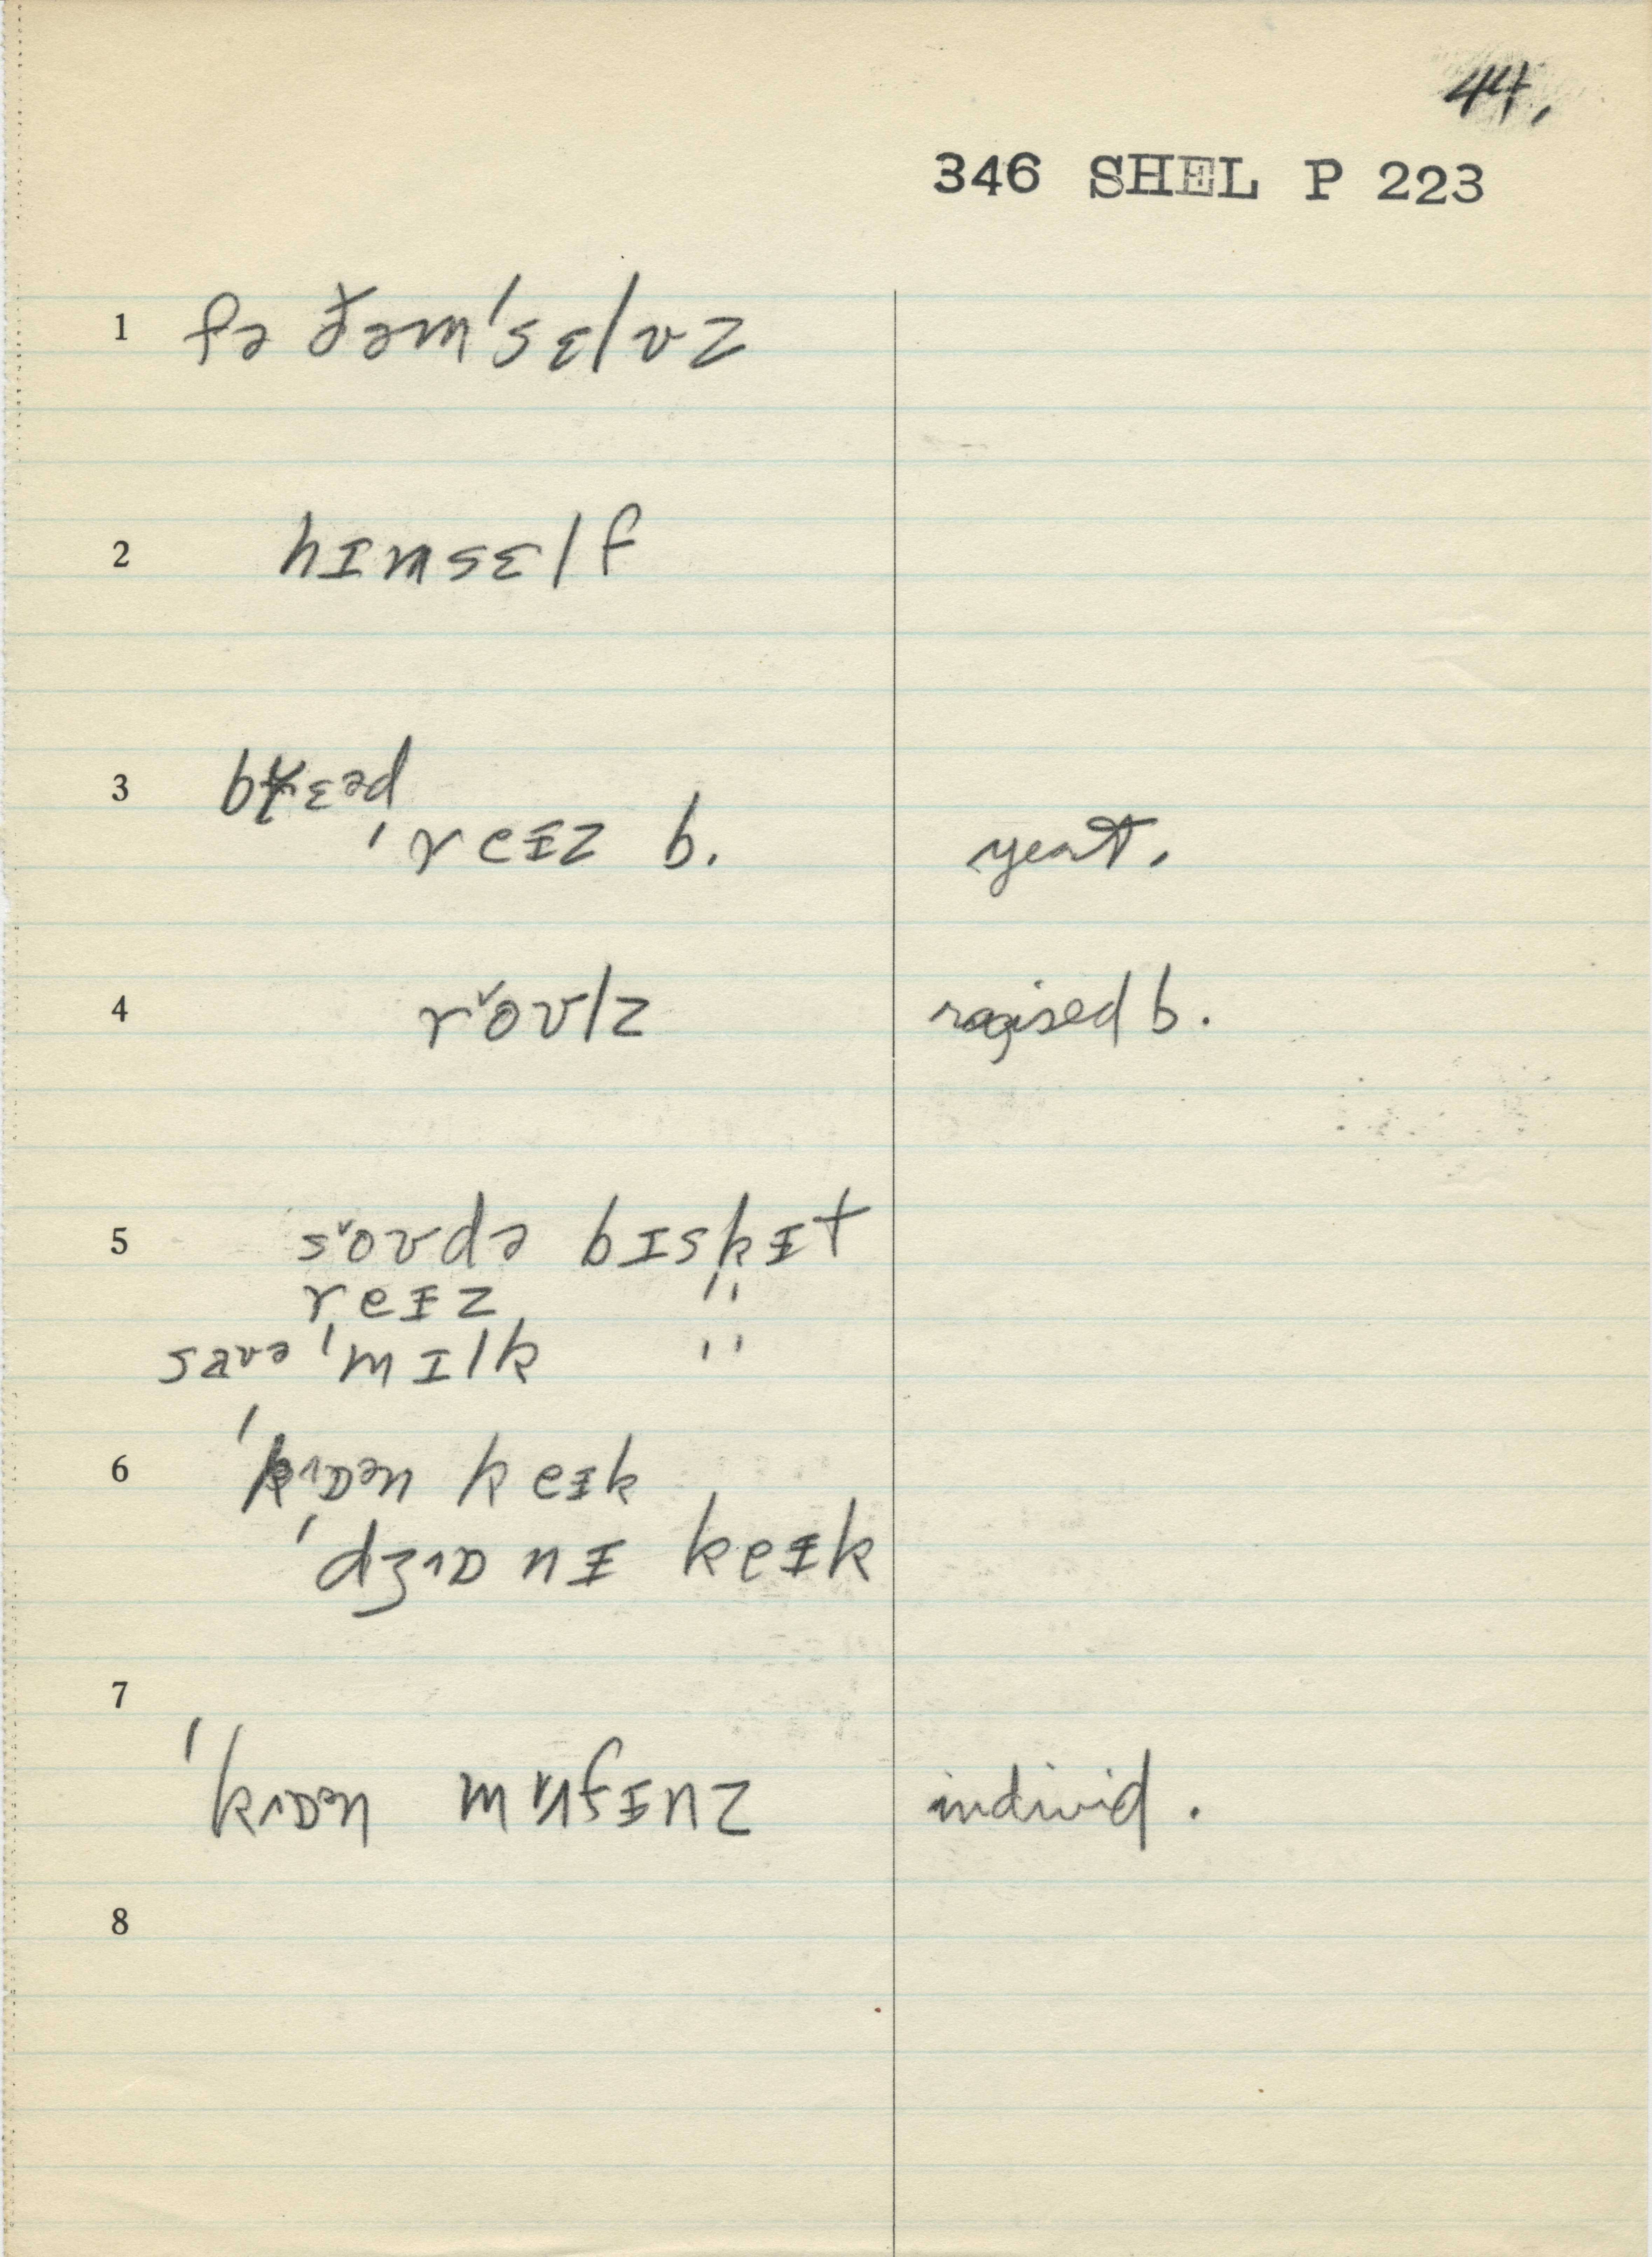 44.
346 SHEL P 223
1 fə ðəm'sɛlvz
2 hɪmsɛlf
3 brɛəd
'reɪz b. yeast.
4 rŏʊlz raised b.
5 sŏʊdə bɪskɪt
reɪz "
saʊə 'mɪlk "
6 'kɒən keɪk
'dʒɒnɪ keɪk
7
'kɒən mʌfɪnz individ.
8